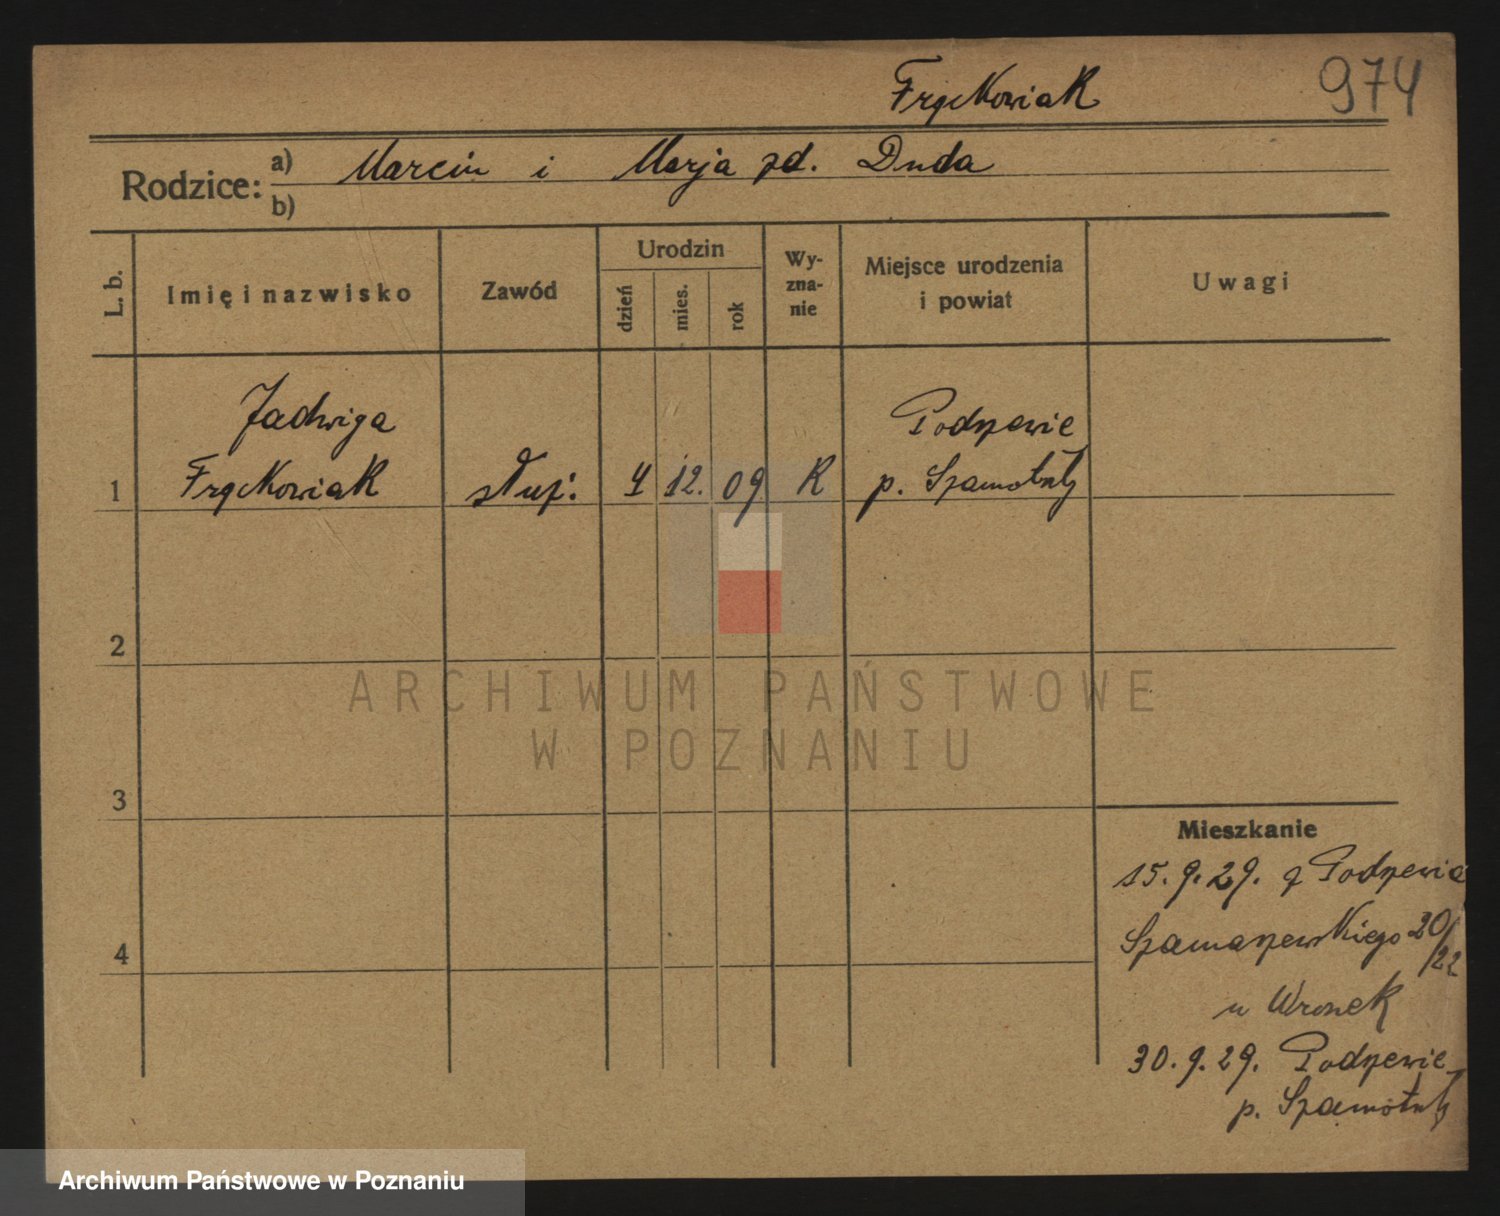 Frąckowiak 974
Rodzice: a) Marcin i Marja zd. Duda
b)
L. b.
Imię i nazwisko
Zawód
Urodzin
dzień
mies.
rok
Wy-
zna-
nie
Miejsce urodzenia
i powiat
Uwagi
Jadwiga Podrzewie
1 Frąckowiak służ. 4 12. 09 R p. Szamotuły
2
3
4
Mieszkanie
15. 9. 29. z Podrzewia
Szamarzewskiego 20/22
u Wronek
30. 9. 29. Podrzewie
p. Szamotuły
ARCHIWUM PAŃSTWOWE
W POZNANIU
Archiwum Państwowe w Poznaniu